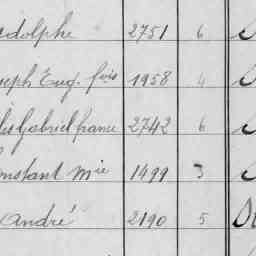 dolphe 2751 6
seph Eug. fois 1958 4
les Gabriel france 2742 6
onstant Mie 1499 3
André 2190 5